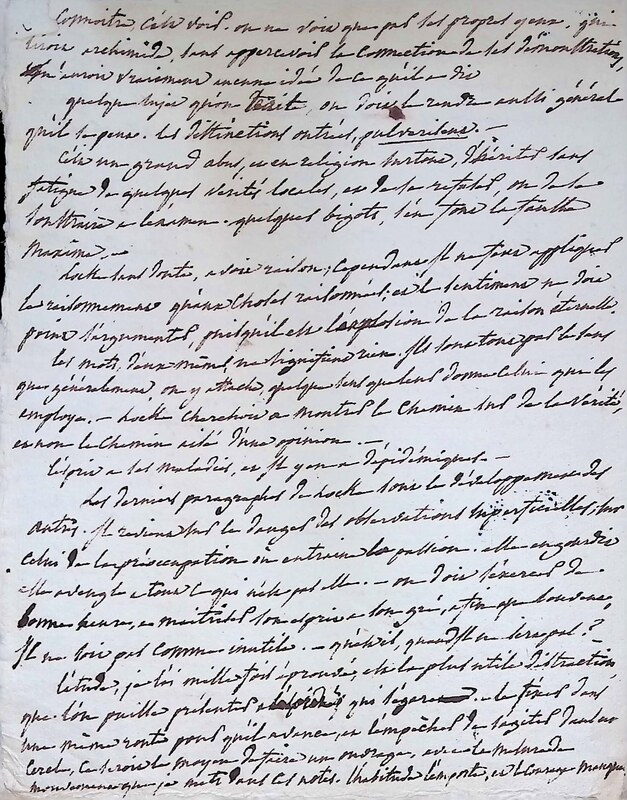 Connoitre, c'est voir. on ne voit que par ses propres yeux. qui
liroit archimede, sans appercevoir la connection de ses démonstrations,
n'auroit vraiment aucune idée de ce qu'il a dit
quelque sujet qu'on traite, on doit le rendre aussi général
qu'il se peut. les distinctions outrées, pulverisent. —
C'est un grand abus, et en religion surtout, d'hériter sans
fatigue de quelques vérités locales, et de se refuser, ou de se
soustraire a l'examen. quelques bigots, s'en font la fausse
maxime. —
Locke sans doute, avoit raison; cependant il ne faut appliquer
le raisonnement qu'aux choses raisonnées; et le sentiment ne doit
point s'argumenter, puisqu'il est l'explosion de la raison éternelle.
les mots, d'eux mêmes, ne signifient rien. Ils sont tous pas le sens
que généralement, on y attache, quelque sens que leur donne celui qui les
employe. — Locke cherchoit a montrer le chemin sur de la vérité,
et non le chemin aisé d'une opinion. —
l'esprit a ses maladies, et il y en a d'épidémiques. —
Les derniers paragraphes de Locke sont le développement des
autres. Il revient sur le danger des observations superficielles, sur
celui de la préoccupation où entraine la passion. elle engourdit
elle aveugle a tout ce qui n'est pas elle. — on doit s'exercer de
bonne heure, a maitriser son esprit a son gré, afin que souvent,
Il ne soit pas comme inutile. — qu'est-il, quand il ne sera pas?
l'étude, je l'ai mille fois éprouvé, est la plus utile distraction
que l'on puisse présenter a qui s'égare. — le fixer dans
une même route pour qu'il avance, et l'empêcher de s'agiter dans un
cercle, ce seroit le moyen de faire un ouvrage, avec le
mouvement que je mets dans ces notes. l'habitude l'emporte, et le courage manque.